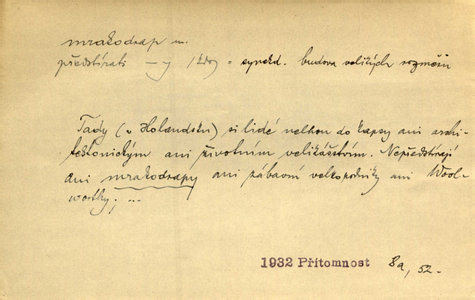 mrakodrap m.
předstírati — y /kdo/ = synekd. budova velikých rozměrů
Tady (v Holandsku) si lidé nelhou do kapsy ani archi-
tektonickým ani životním velikášstvím. Nepředstírají
ani mrakodrapy ani zábavní velkopodniky ani Wool-
worthy; ...
1932 Přítomnost 8a, 52.